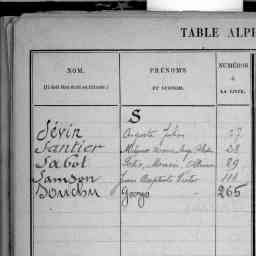 TABLE ALPH
NOM.
(Il doit être écrit en bâtarde.)
PRÉNOMS
ET SURNOM.
NUMÉROS
à
LA LISTE.
S
Sévin Auguste Jules 27
Santier 28
Sabot 29
Samson Jean Baptiste Victor 111
Bouchu George 265